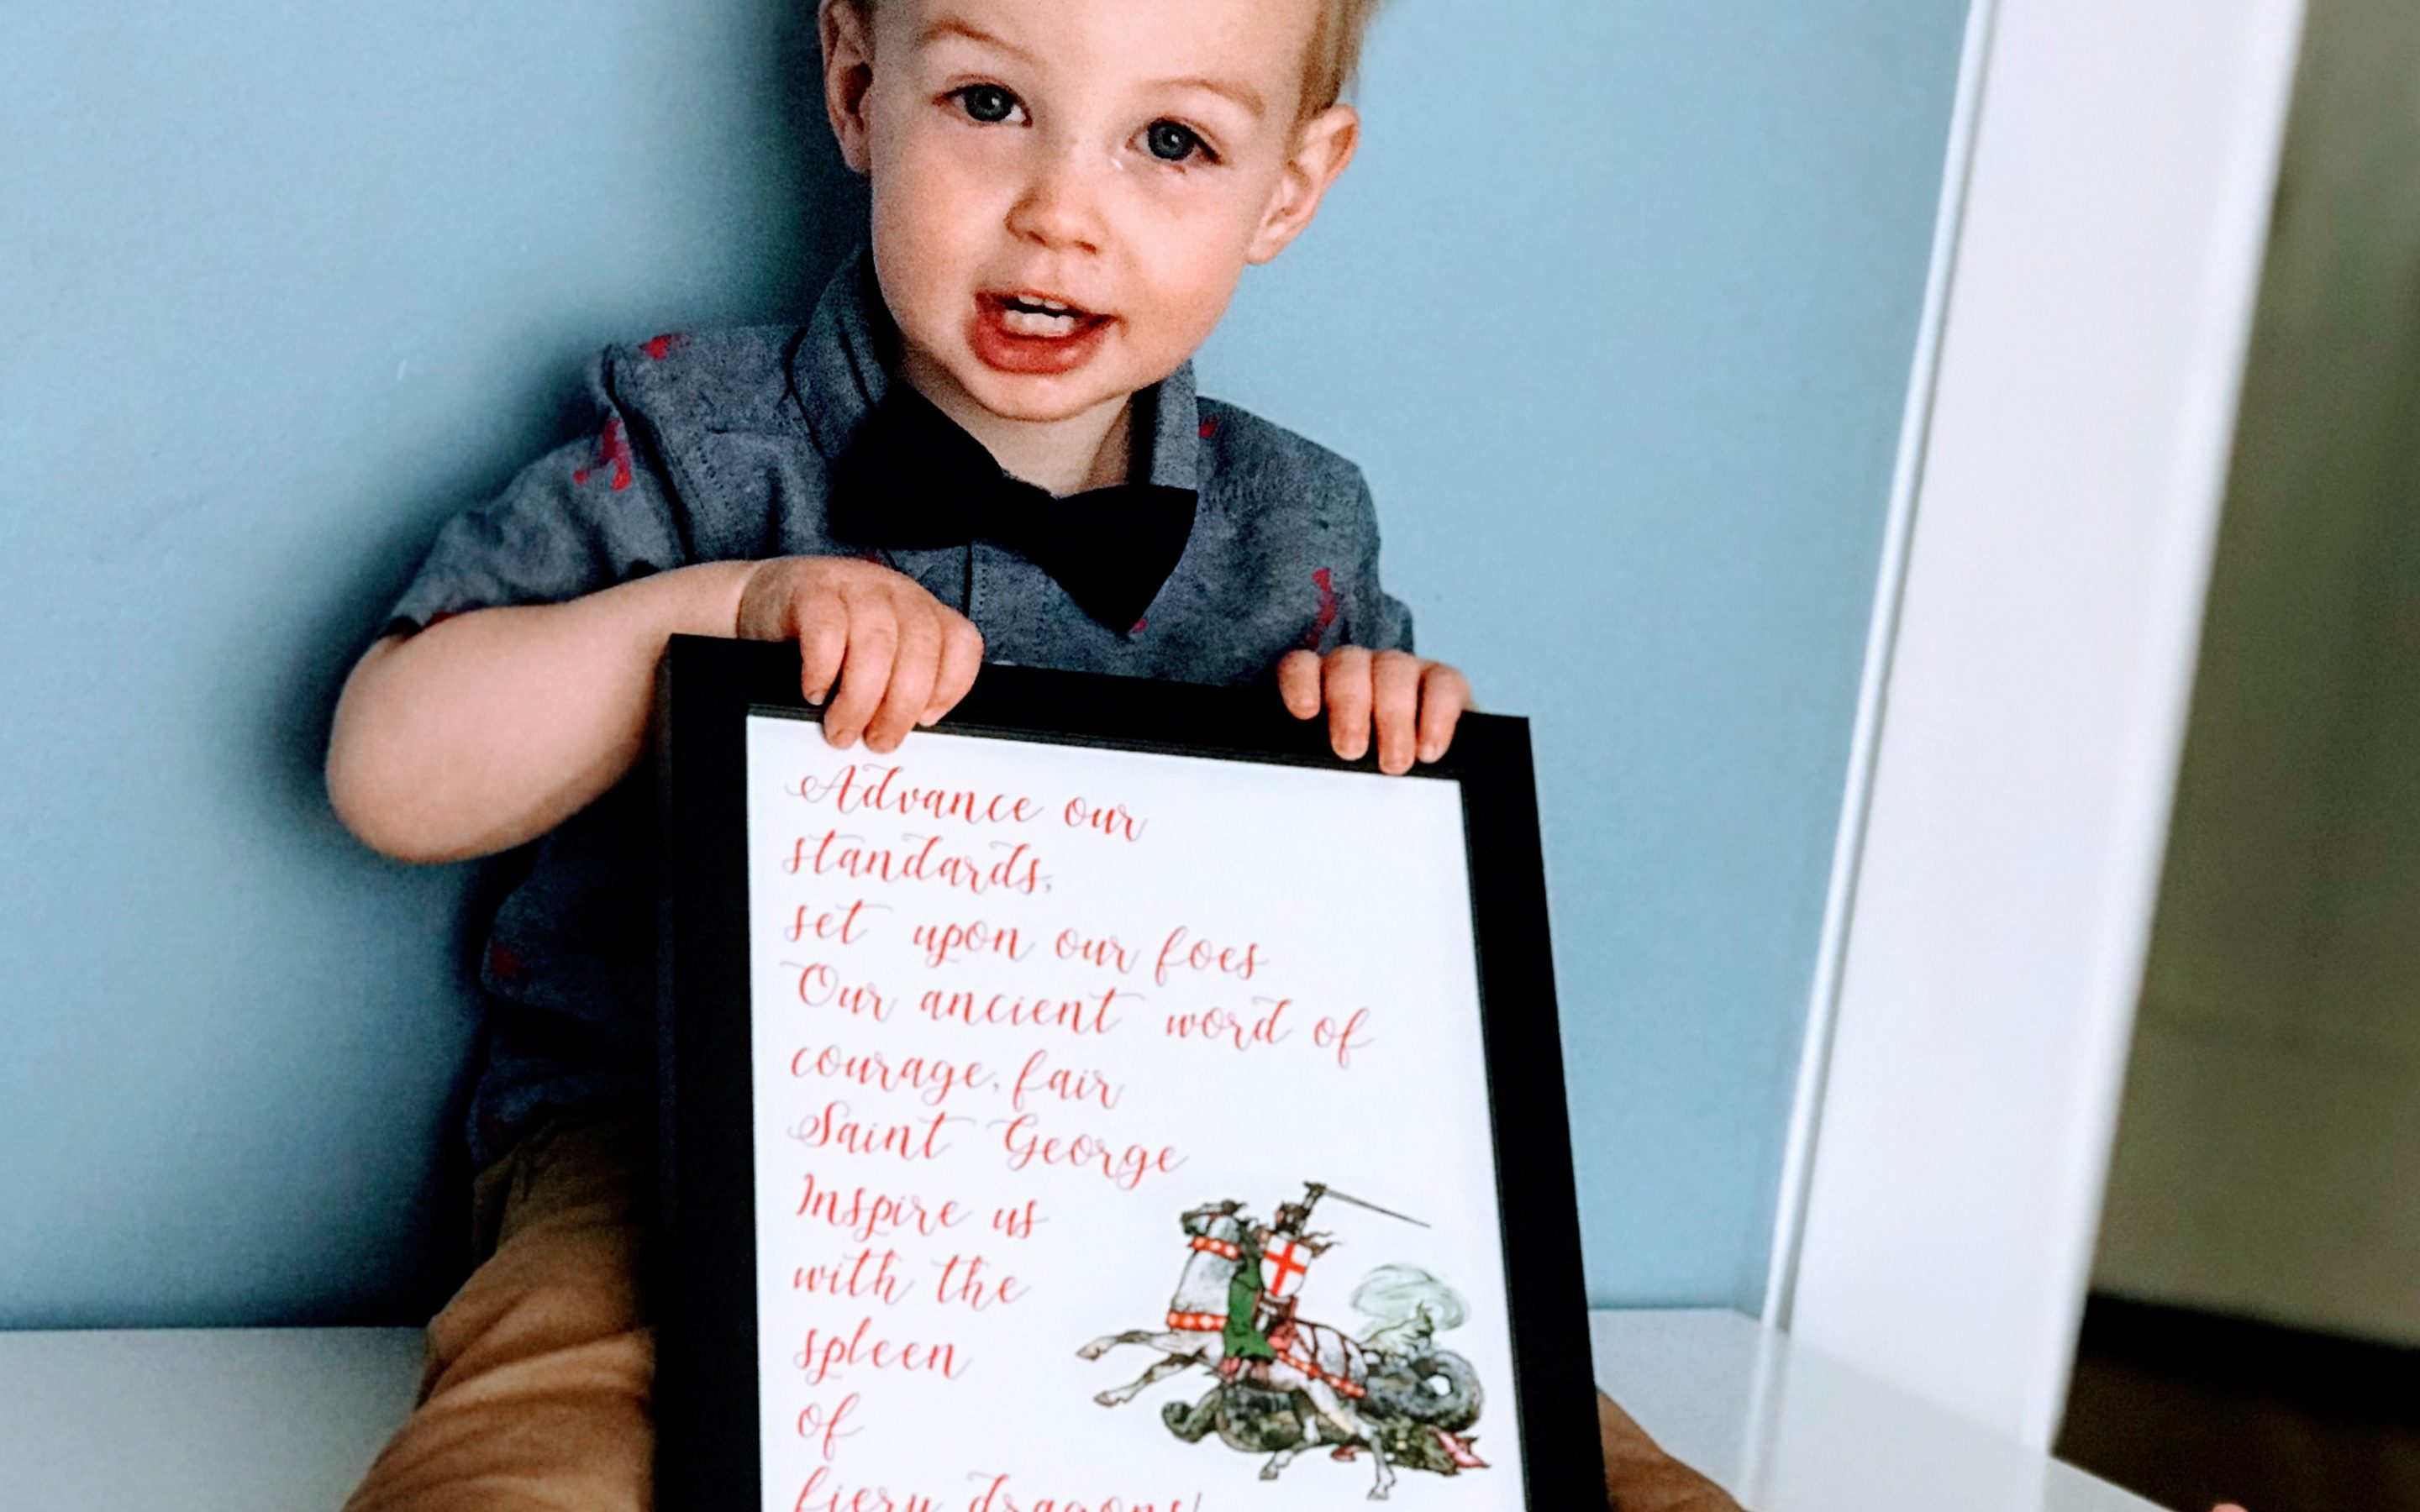 Advance our
standards,
set upon our foes
Our ancient word of
courage, fair
Saint George
Inspire us
with the
spleen
of
fiery dragons!